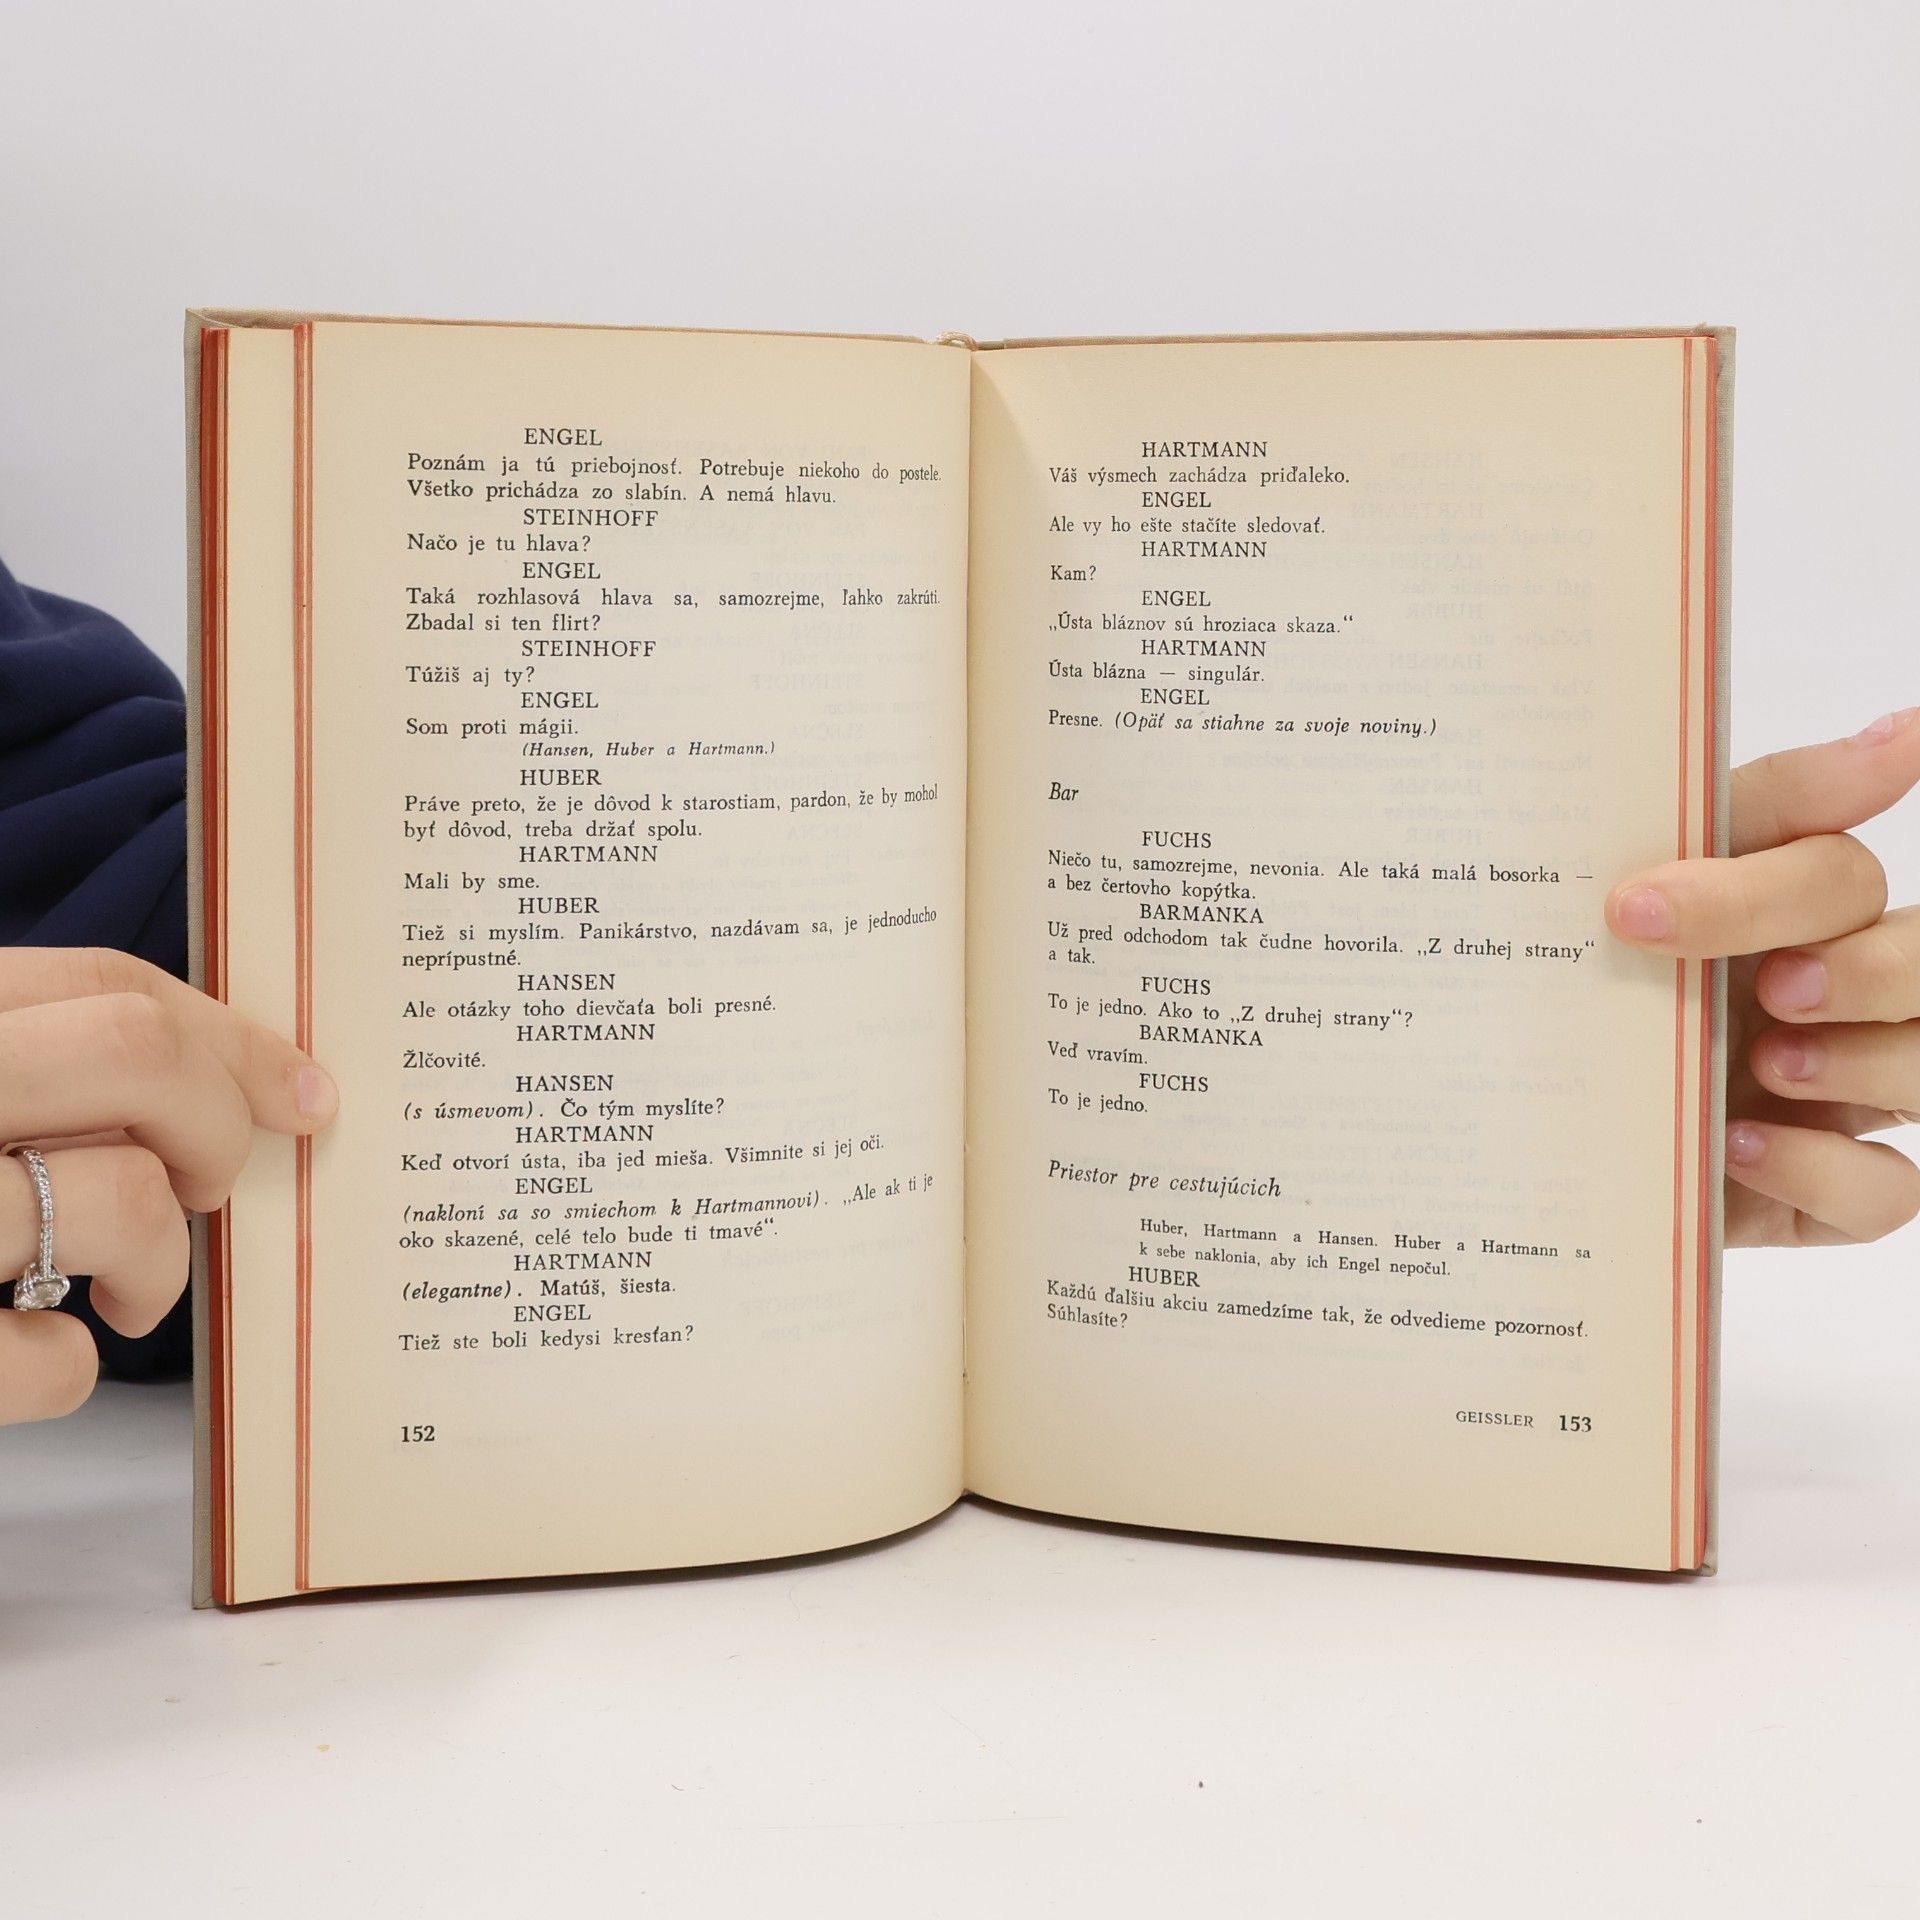 ENGEL
Poznám ja tú priebojnosť. Potrebuje niekoho do postele.
Všetko prichádza zo slabín. A nemá hlavu.
STEINHOFF
Načo je tu hlava?
ENGEL
Taká rozhlasová hlava sa, samozrejme, ľahko zakrúti.
Zbadal si ten flirt?
STEINHOFF
Túžiš aj ty?
ENGEL
Som proti mágii.
(Hansen, Huber a Hartmann.)
HUBER
Práve preto, že je dôvod k starostiam, pardon, že by mohol
byť dôvod, treba držať spolu.
HARTMANN
Mali by sme.
HUBER
Tiež si myslím. Panikárstvo, nazdávam sa, je jednoducho
neprípustné.
HANSEN
Ale otázky toho dievčaťa boli presné.
HARTMANN
Žlčovité.
HANSEN
(s úsmevom). Čo tým myslíte?
HARTMANN
Keď otvorí ústa, iba jed mieša. Všimnite si jej oči.
ENGEL
(nakloní sa so smiechom k Hartmannovi). „Ale ak ti je
oko skazené, celé telo bude ti tmavé“.
HARTMANN
(elegantne). Matúš, šiesta.
ENGEL
Tiež ste boli kedysi kresťan?
152
HARTMANN
Váš výsmech zachádza priďaleko.
ENGEL
Ale vy ho ešte stačíte sledovať.
HARTMANN
Kam?
ENGEL
„Ústa bláznov sú hroziaca skaza.“
HARTMANN
Ústa blázna — singulár.
ENGEL
Presne. (Opäť sa stiahne za svoje noviny.)
Bar
FUCHS
Niečo tu, samozrejme, nevonia. Ale taká malá bosorka —
a bez čertovho kopýtka.
BARMANKA
Už pred odchodom tak čudne hovorila. „Z druhej strany“
a tak.
FUCHS
To je jedno. Ako to „Z druhej strany“?
BARMANKA
Veď vravím.
FUCHS
To je jedno.
Priestor pre cestujúcich
Huber, Hartmann a Hansen. Huber a Hartmann sa
k sebe naklonia, aby ich Engel nepočul.
HUBER
Každú ďalšiu akciu zamedzíme tak, že odvedieme pozornosť.
Súhlasíte?
GEISSLER 153